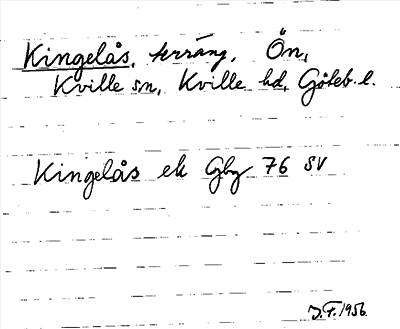 Kingelås, terräng, Ön,
Kville sn, Kville hd, Göteb. l.
Kingelås ek Gbg 76 SV
J.F. 1956.